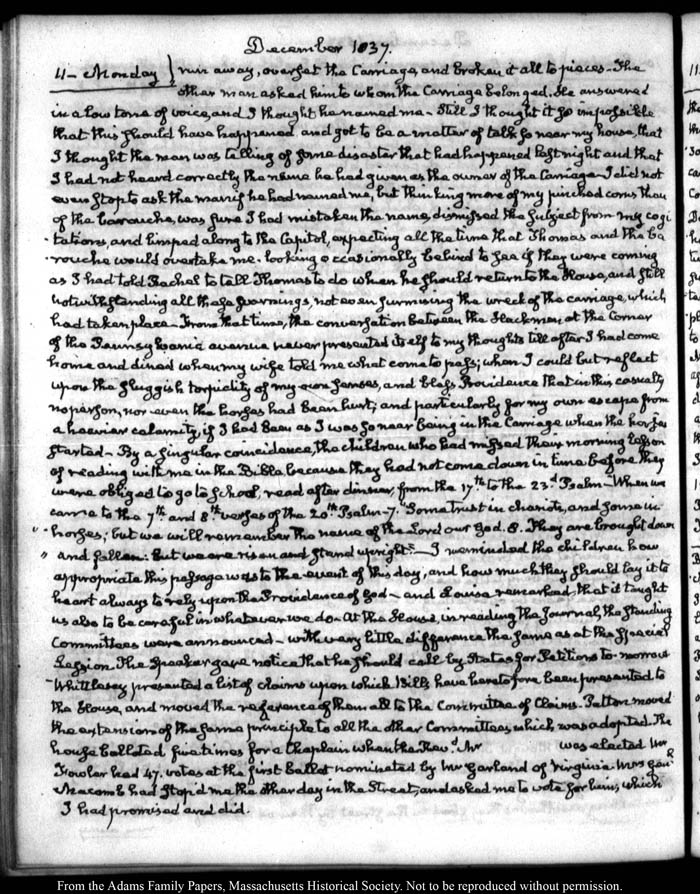 December 1837.
11- Monday } run away, overset the Carriage, and broken it all to pieces- The
other man asked him to whom the Carriage belonged. He answered
in a low tone of voice, and I thought he named me- Still I thought it so impossible
that this should have happened, and got to be a matter of talk so near my house, that
I thought the man was telling of some disaster that had happened last night and that
I had not heard correctly the name he had given as the owner of the Carriage- I did not
even stop to ask the man if he had named me, but thinking more of my pinched corns than
of the barouche, was sure I had mistaken the name, dismissed the subject from my cogi
-tations, and limped along to the Capitol, expecting all the time that Thomas and the ba
-rouche would overtake me- looking occasionally behind to see if they were coming
as I had told Rachel to tell Thomas to do when he should return to the House, and still
notwithstanding all these forewarnings, not even surmising the wreck of the carriage, which
had taken place- From that time, the conversation between the Hackmen, at the Corner
of the Pennsylvania avenue never presented itself to my thoughts till after I had come
home and dined when my wife told me what come to pass; when I could but reflect
upon the sluggish torpidity of my own senses, and bless Providence that in this casualty
no person, nor even the horses had been hurt; and particularly for my own escape from
a heavier calamity, if I had been as I was so near being in the Carriage when the horses
started- By a singular coincidence, the children who had missed their morning lesson
of reading with me in the Bible because they had not come down in time before they
were obliged to go to School, read after dinner, from the 17th to the 23d Psalm- When we
came to the 7th and 8th verses of the 20th Psalm- 7. "Some trust in chariots, and some in
" horses; but we will remember the name of the Lord our God. 8. They are brought down
" and fallen: But we are risen and stand upright"- I reminded the children how
appropriate this passage was to the event of this day, and how much they should lay it to
heart always to rely upon the Providence of God- and Louisa remarked, that it taught
us also to be careful in whatever we do- At the House, in reading the Journal, the standing
Committees were announced- with very little difference the same as at the Special
Session. The Speaker gave notice that he should call by States for Petitions to-morrow
-Whittlesey presented a list of claims upon which Bills have heretofore been presented to
the House, and moved the reference of them all to the Committee of Claims. Patton moved
the extension of the same principle to all the other Committees which was adopted. The
house balloted five times for a Chaplain when the Revd. Mr was elected Mr
Fowler had 47. votes at the first ballot nominated by Mr Garland of Virginia Mrs
Macomb had stop'd me the other day in the Street, and asked me to vote for him, which
I had promised and did.
From the Adams Family Papers, Massachusetts Historical Society. Not to be reproduced without permission.